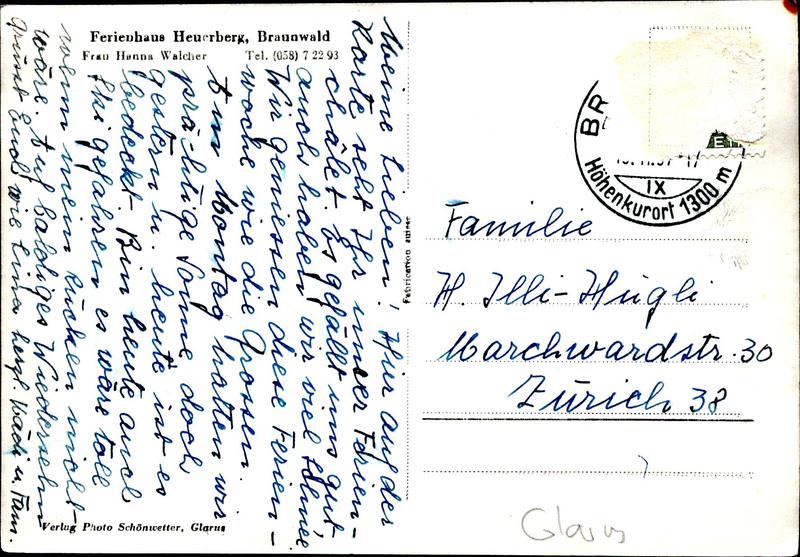 Ferienhaus Heuerberg, Braunwald
Frau Hanna Walcher Tel. (058) 7 22 93
Meine Lieben! Hier auf der
Karte seht Ihr unser Ferien-
châlet. Es gefällt uns gut
auch haben wir viel Schnee
Wir geniessen diese Ferien-
woche wie die Grossen.
Am Montag hatten wir
prächtige Sonne doch
gestern u. heute ist es
bedeckt. Bin heute auch
Ski gefahren es wäre toll
wenn mein Rücken nicht
wäre. Auf baldiges Wiedersehn
grüsst Euch wie immer herzl. u. Fam.
Verlag Photo Schönwetter, Glarus
Fabrication suisse
BR
IX
Höhenkurort 1300 m
Familie
H. Illi-Hügli
Marchwardstr. 30
Zürich 38
Glarus